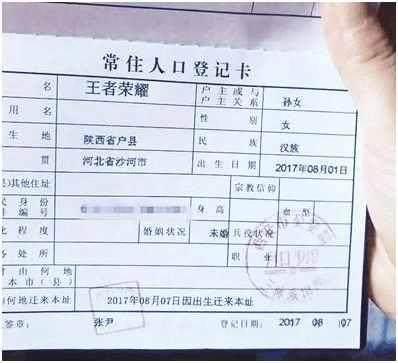 常住人口登记卡
名 王者荣耀 户主或与户主关系 孙女
用名 性别 女
生地 陕西省户县 民族 汉族
贯 河北省沙河市 出生日期 2017年08月01日
其他住址 宗教信仰
民身份件编号 身高 血型
化程度 婚姻状况 未婚 兵役状况
务处所 职业
时由何地本市(县)
何地迁来本址 2017年08月07日因出生迁来本址
签章: 张尹 登记日期: 2017 08 07